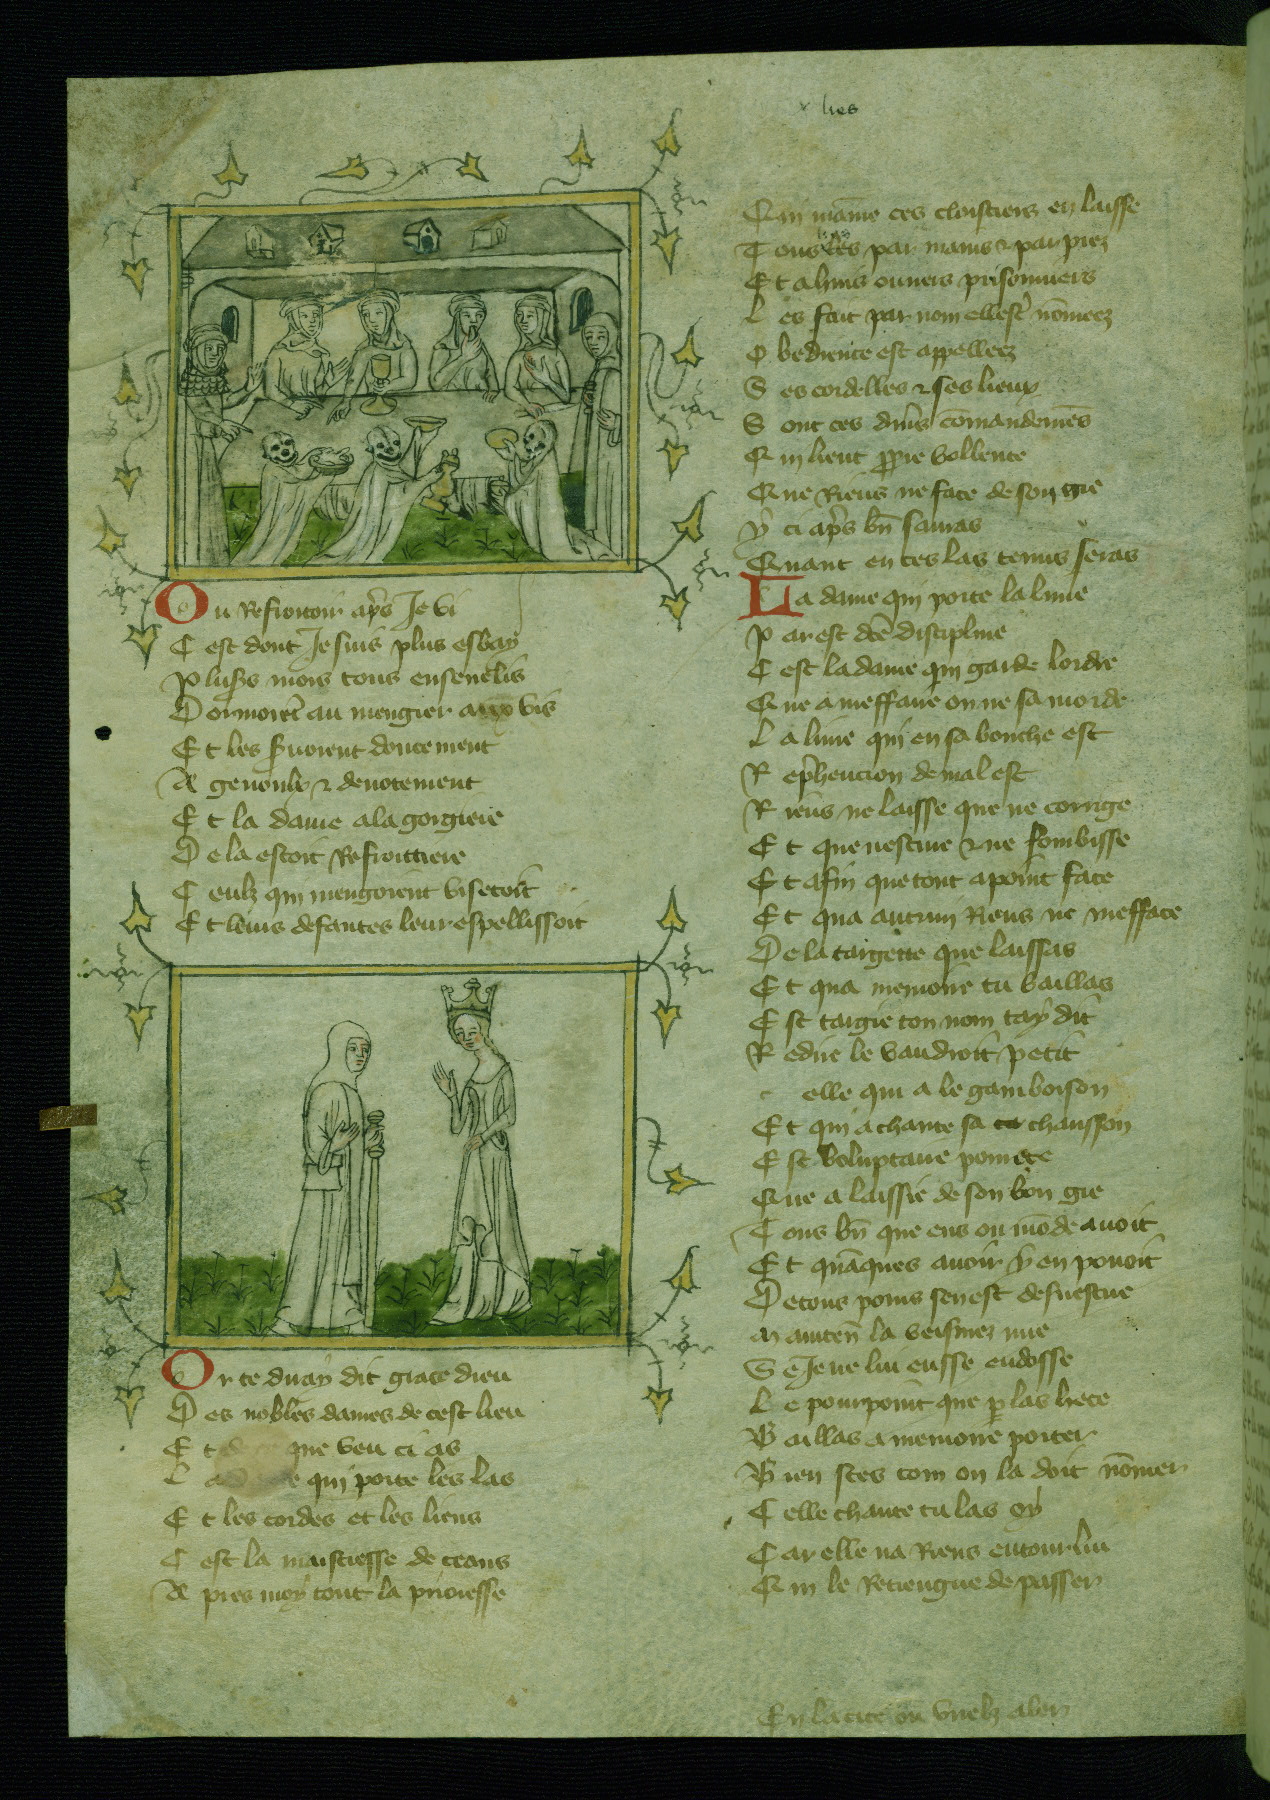 lies
Ou Refroitoir ap̃s Je vi
C est dont Je suis plus esbay
P lus̃s mors tous enseuelis
D onnoiẽt au mengier aux vis
E t les ẜuoient doucement
A genoulx ⁊ deuotement
E t la dame a la gorgiere
D e la estoit Refroittiere
C eulz qui mengoient visetoit
E t leurs defautes leur espellissoit
Or te diray dit grace dieu
D es nobles dames de cest lieu
E t que veu ci as
L a qui porte les las
E t les cordes et les liens
C est la maistresse de ceans
A pres moy tout la prioresse
Qui maĩne ces cloistiers en laisse
T ous lies par mains ⁊ par piez
E t a huis ouuers prisonniers
L es fait par nom elle est nõmeez
O bedience est appelleez
S es cordelles ⁊ ses lieux
S ont ces diuũs cõmandemẽs
Q ui lient p̃pie vollente
Q ue Riens ne face de son gre
Y ci ap̃s bñ sauras
Quant en ces las tenus seras
La dame qui porte la lime
P ar est dc̃e discipline
C est la dame qui garde lordre
Q ue a meffaire on ne sa morde
L a lime qui en sa bouche est
R ep̃hencion de mal est
R iens ne laisse que ne corrige
E t que nescure ⁊ ne fombisse
E t afin que tout a point face
E t qua autrui Riens ne mefface
D e la targete que laissas
E t qua memoire tu baillas
E st targie ton nom tay dit
R edire le vaudroit petit
c elle qui a le gamboison
E t qui a chante sa chansson
E st voluptaire pourete
Q ue a laissie de son bon gre
T ous bñ que ens ou mõde auoit
E t quãques auoir y en pouoit
D e tous poins sen est desuestue
M aintenñ la veismez nue
S e Je ne lui eusse endosse
L e pourpoint que p̱ las liete
B aillas a memoire porter
B ien sces com on la doit nõmer
C elle chante tu las oy
C ar elle na Riens entour lui
Q ui le Retiengne de passer
En la cite ou vuelz aler